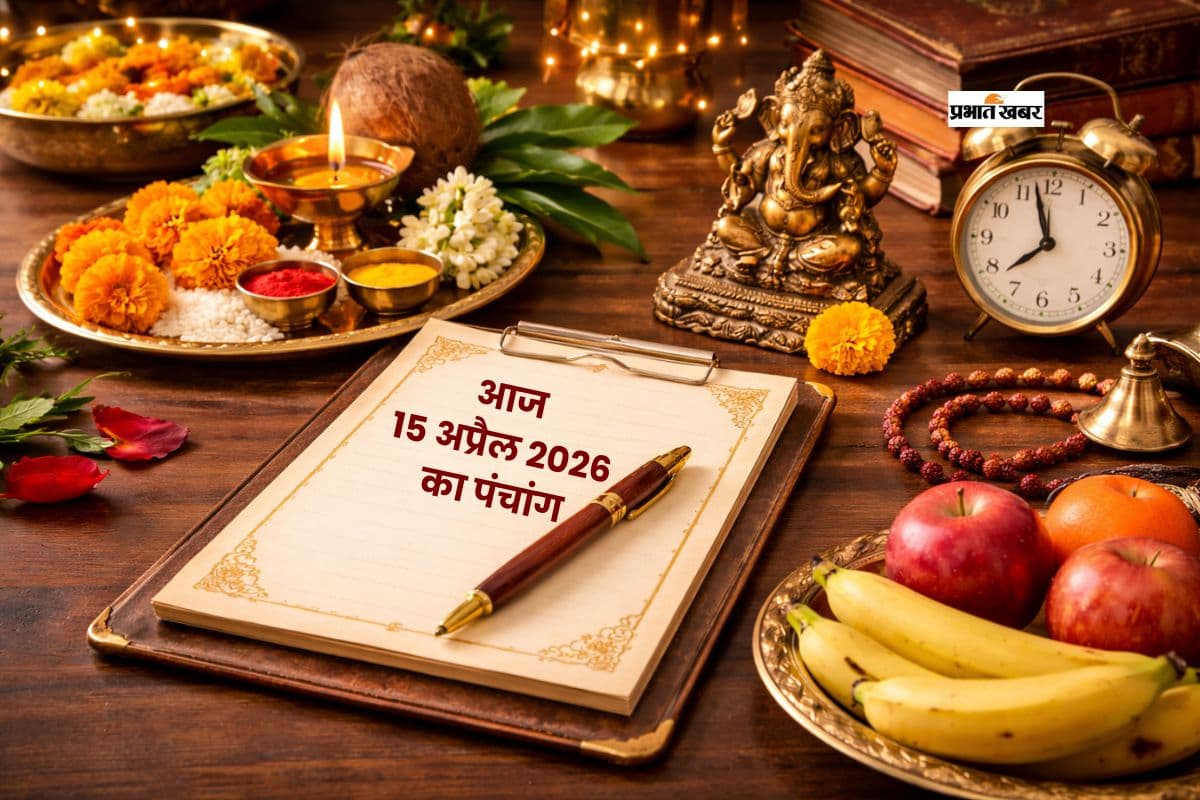 प्रभात खबर
आज
15 अप्रैल 2026
का पंचांग
11 12 1
10 2
9 3
8 4
7 6 5